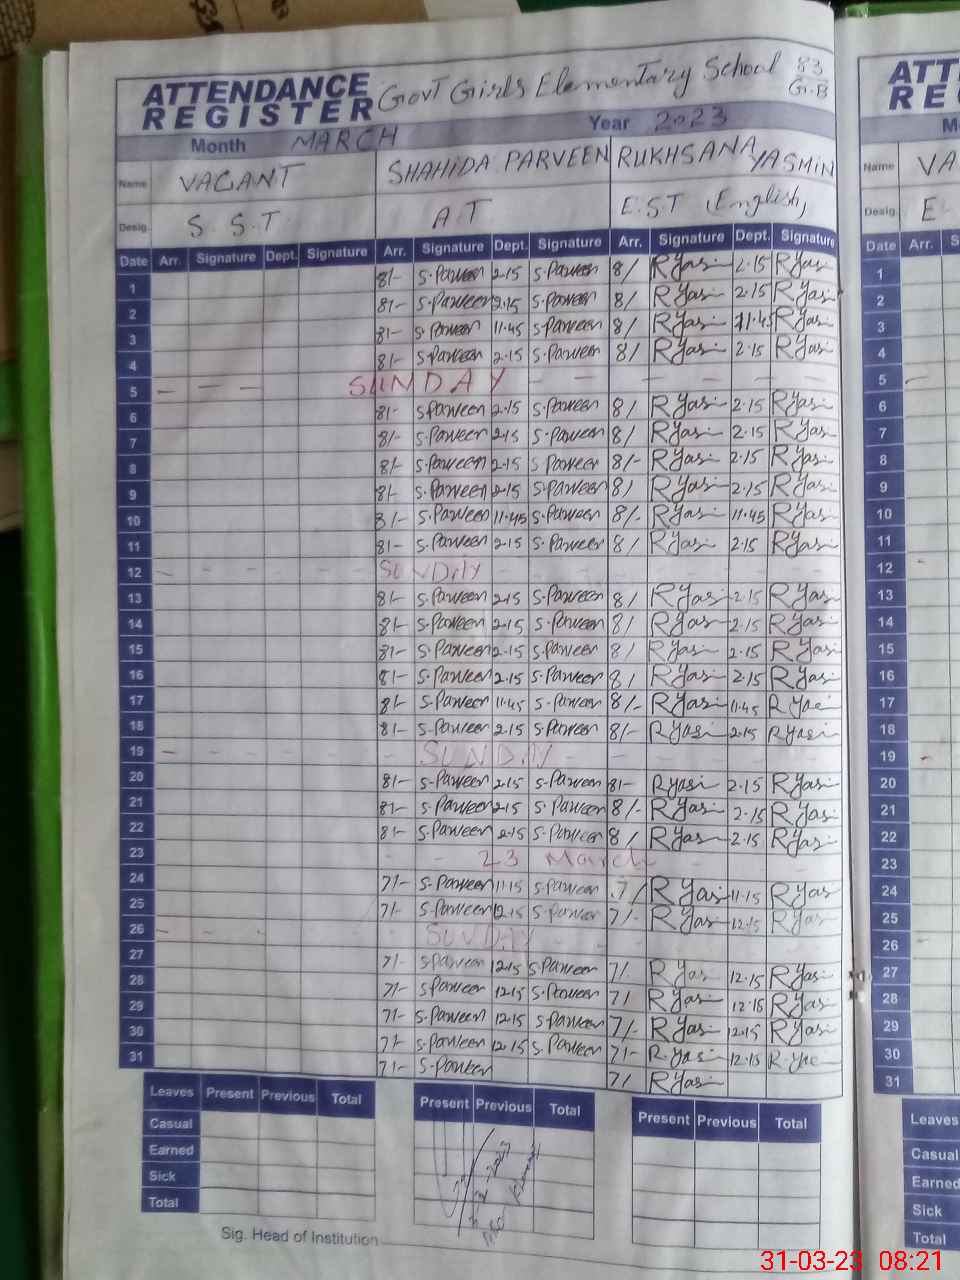 ATTENDANCE REGISTER Govt Girls Elementary School 83 G.B
Month MARCH Year 2023
Name VACANT SHAHIDA PARVEEN RUKHSANA YASMIN Name VA
Desig. S.S.T A.T E.S.T (English) Desig. E
Date Arr. Signature Dept. Signature Arr. Signature Dept. Signature Arr. Signature Dept. Signature Date Arr. S
1 8/- S.Parveen 2.15 S.Parveen 8/ RYasi 2.15 RYasi 1
2 8/- S.Parveen 2.15 S.Parveen 8/ RYasi 2.15 RYasi 2
3 8/- S.Parveen 11.45 S.Parveen 8/ RYasi 11.45 RYasi 3
4 8/- S.Parveen 2.15 S.Parveen 8/ RYasi 2.15 RYasi 4
5 SUNDAY 5
6 8/- S.Parveen 2.15 S.Parveen 8/ RYasi 2.15 RYasi 6
7 8/- S.Parveen 2.15 S.Parveen 8/ RYasi 2.15 RYasi 7
8 8/- S.Parveen 2.15 S.Parveen 8/- RYasi 2.15 RYasi 8
9 8/- S.Parveen 2.15 S.Parveen 8/ RYasi 2.15 RYasi 9
10 8/- S.Parveen 11.45 S.Parveen 8/- RYasi 11.45 RYasi 10
11 8/- S.Parveen 2.15 S.Parveen 8/ RYasi 2.15 RYasi 11
12 SUNDAY 12
13 8/- S.Parveen 2.15 S.Parveen 8/ RYasi 2.15 RYasi 13
14 8/- S.Parveen 2.15 S.Parveen 8/ RYasi 2.15 RYasi 14
15 8/- S.Parveen 2.15 S.Parveen 8/ RYasi 2.15 RYasi 15
16 8/- S.Parveen 2.15 S.Parveen 8/ RYasi 2.15 RYasi 16
17 8/- S.Parveen 11.45 S.Parveen 8/- RYasi 11.45 RYasi 17
18 8/- S.Parveen 2.15 S.Parveen 8/- RYasi 2.15 RYasi 18
19 SUNDAY 19
20 8/- S.Parveen 2.15 S.Parveen 8/- RYasi 2.15 RYasi 20
21 8/- S.Parveen 2.15 S.Parveen 8/- RYasi 2.15 RYasi 21
22 8/- S.Parveen 2.15 S.Parveen 8/ RYasi 2.15 RYasi 22
23 23 March 23
24 7/- S.Parveen 11.15 S.Parveen 7/ RYasi 11.15 RYas 24
25 7/- S.Parveen 12.15 S.Parveen 7/- RYasi 12.15 RYasi 25
26 SUNDAY 26
27 7/- S.Parveen 12.15 S.Parveen 7/- RYas 12.15 RYasi 27
28 7/- S.Parveen 12.15 S.Parveen 7/ RYasi 12.15 RYasi 28
29 7/- S.Parveen 12.15 S.Parveen 7/- RYasi 12.15 RYasi 29
30 7/- S.Parveen 12.15 S.Parveen 7/- R.Yasi 12.15 R.Yasi 30
31 7/- S.Parveen 7/ RYasi 31
Leaves Present Previous Total Present Previous Total Present Previous Total Leaves
Casual Casual
Earned Earned
Sick Sick
Total Total
Sig. Head of Institution
31-03-23 08:21